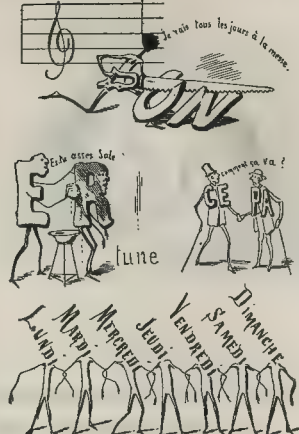 Je vais tous les jours à la messe.
ON
Es tu assez Sale
E
tune
comment ça va ?
CE PA
LUNDI MARDI MERCREDI JEUDI VENDREDI SAMEDI DIMANCHE